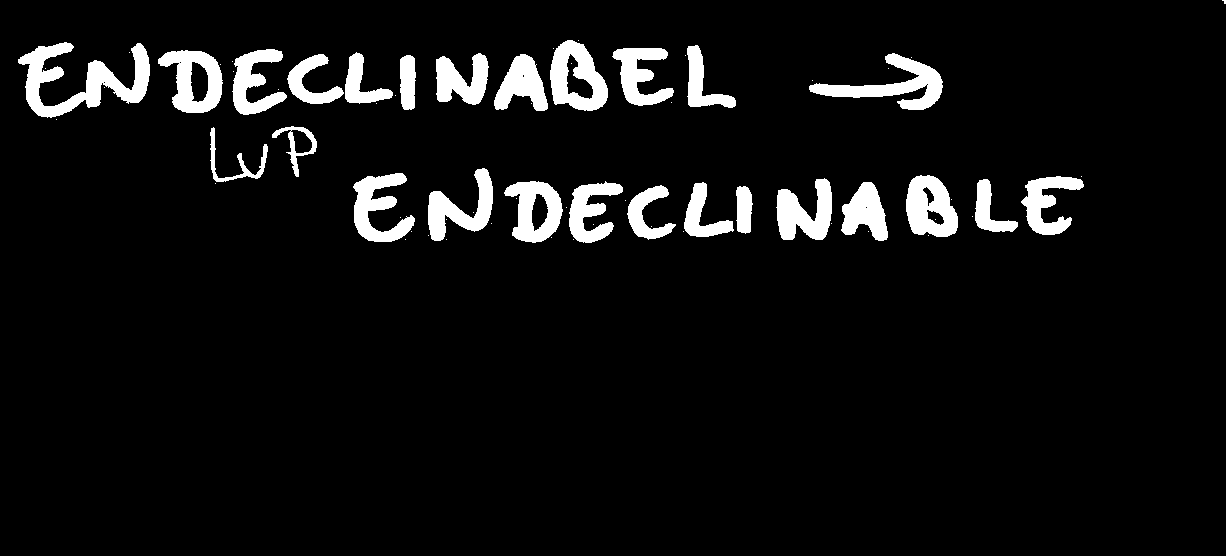 ENDECLINABEL →
LVP
ENDECLINABLE